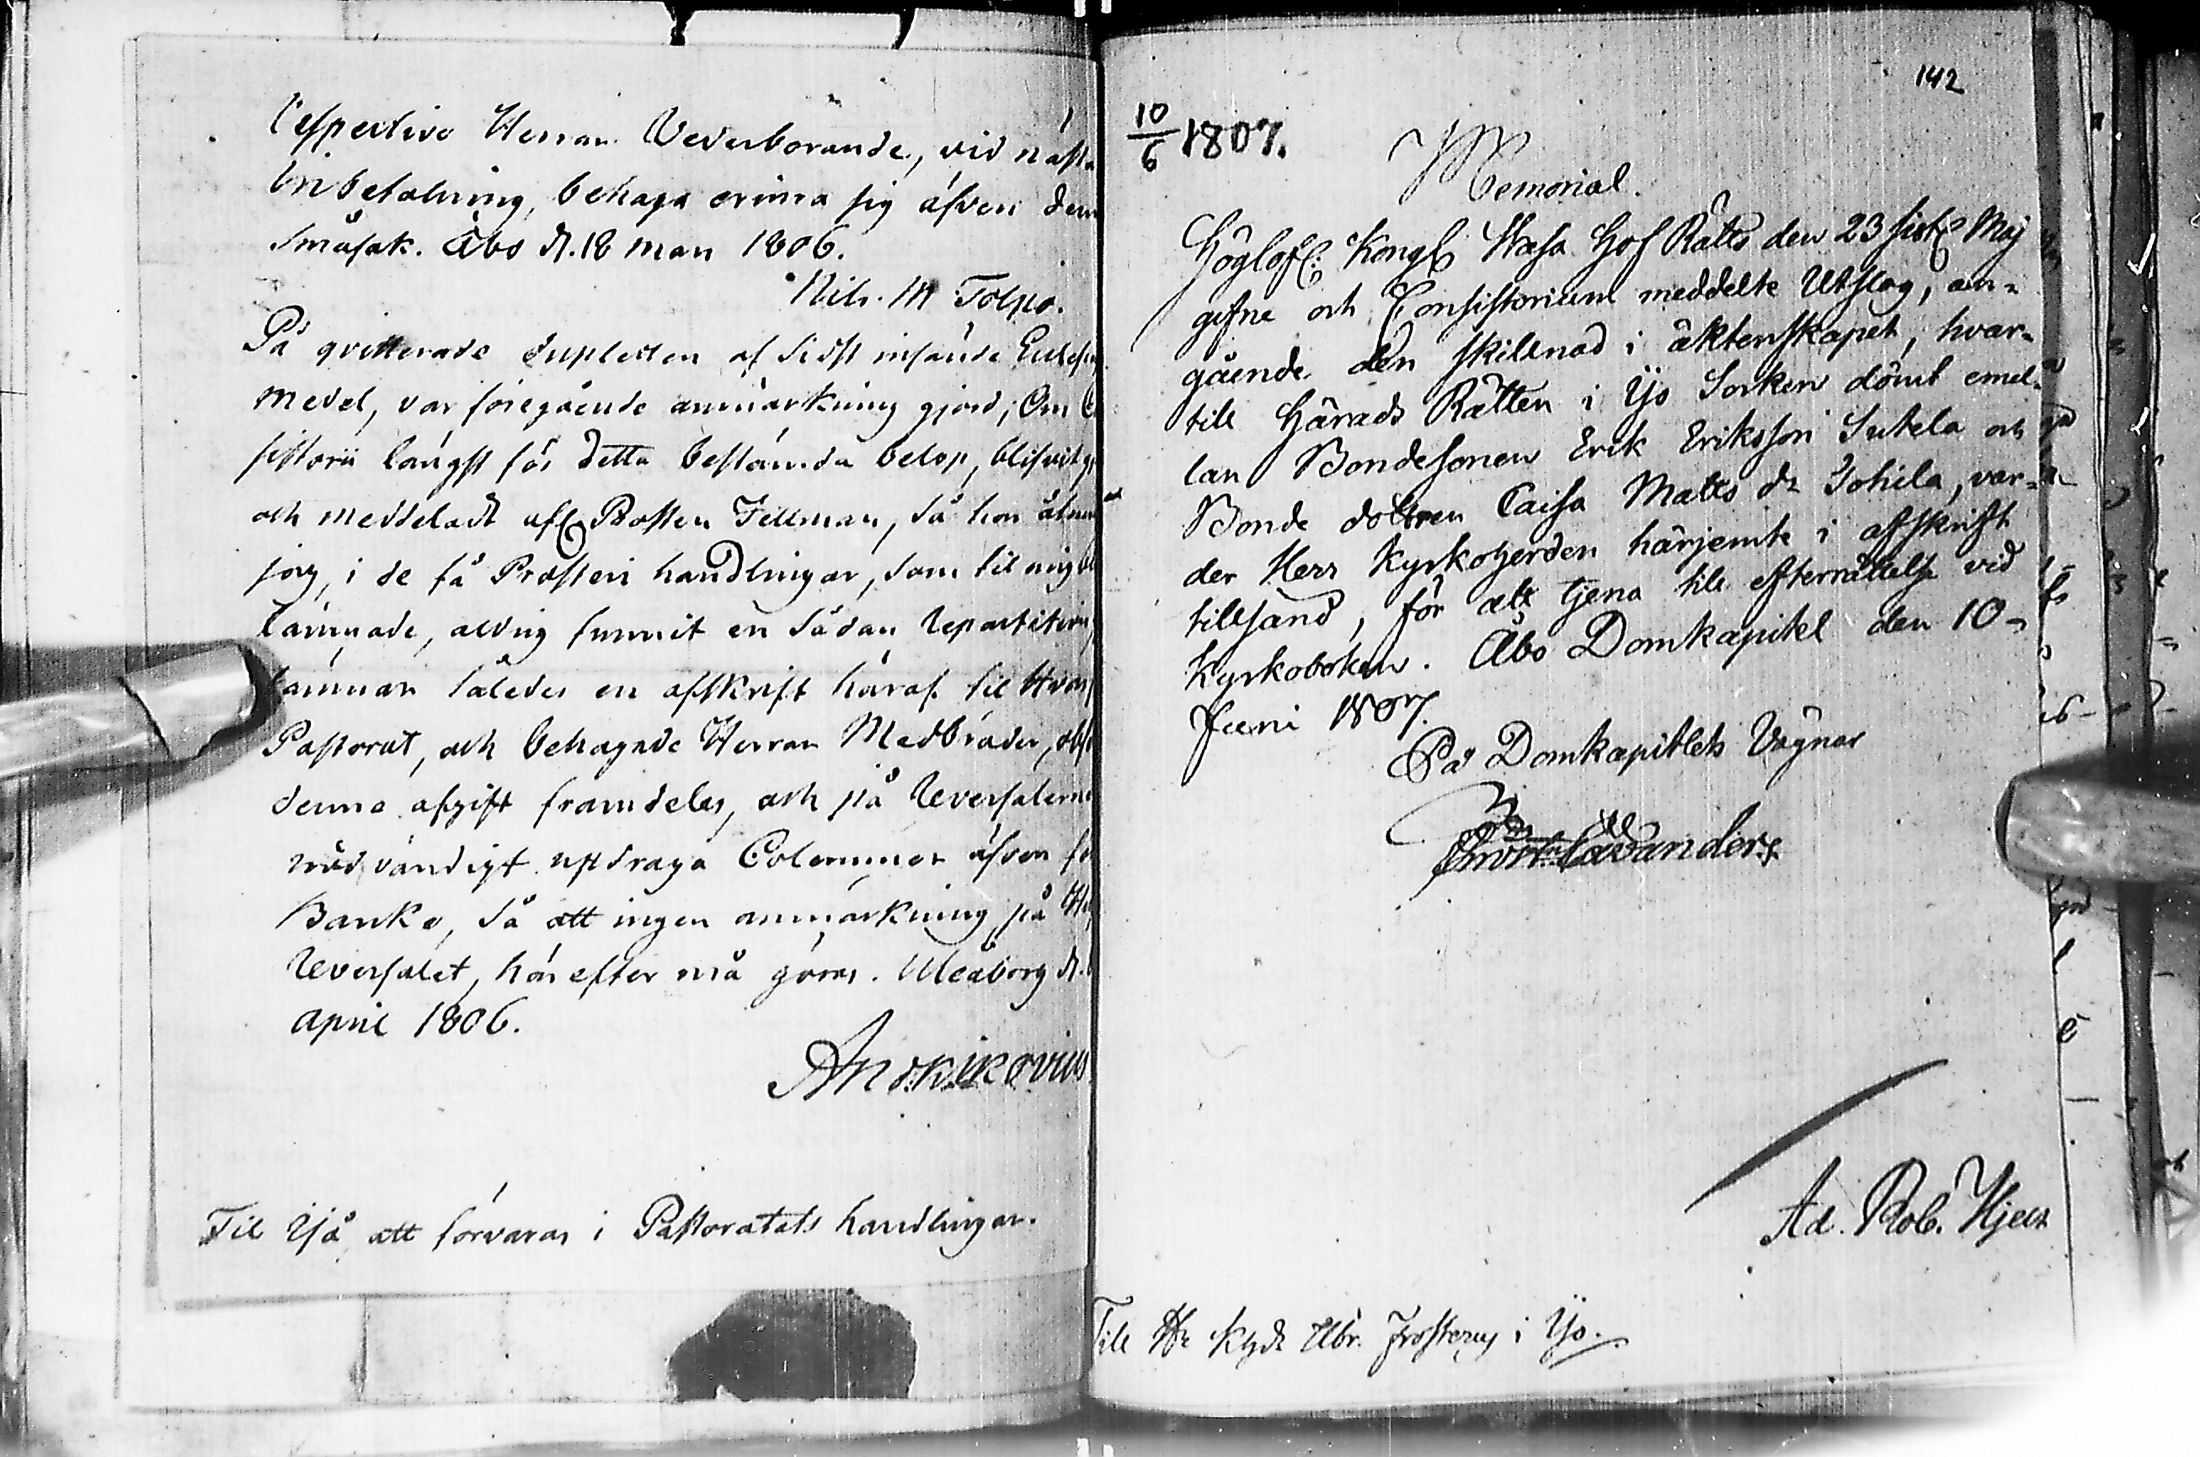 respective Herrar Vederbörande, vid nästa
Inbetalning, behaga erinra sig äfven denna
Småsak. Åbo d. 18 mars 1806.
Nils. M Tolpo.
På qvitterade dupletten af sidst insände
medel, var föregående anmärkning gjord; Om
sistorii längst för detta bestämda belop, blifvit
och meddeladt afl. Prosten Fellman, så har
jag, i de få Prosteri handlingar, som til mig
lämnade, aldrig funnit en sådan repartition,
lämnar således en afskrift häraf til hvar
Pastorat, och behagade Herrar Medbröder,
denna afgift framdeles, och på Reversalerne
nödvändigt updraga Columner äfven
Banko, så att ingen anmärkning på
Reversalet, här efter må göras. Uleåborg d.
April 1806.
Til Ijå att förvaras i Pastoratets handlingar.
142
10/6 1807.
Memorial.
Höglofl: Kongl Wasa Hof Rätts den 23 sistl Maj
gifne och Consistorium meddelte Utslag, an-
gående den skillnad i äktenskapet, hvar-
till Härads Rätten i Ijo Socken dömt emel-
lan Bondesonen Erik Eriksson Sutela och
Bonde dottren Caisa Matts dr Johila, var-
der Herr Kyrkoherden härjemte i afskrift
tillsänd, för att tjena till efterrättelse vid
Kyrkoboken. Åbo Domkapitel den 10
Juni 1807.
På Domkapitlets Vägnar
Ad. Rob. Hjelt
Till Hr Kyhr Frosterus i Ijo.